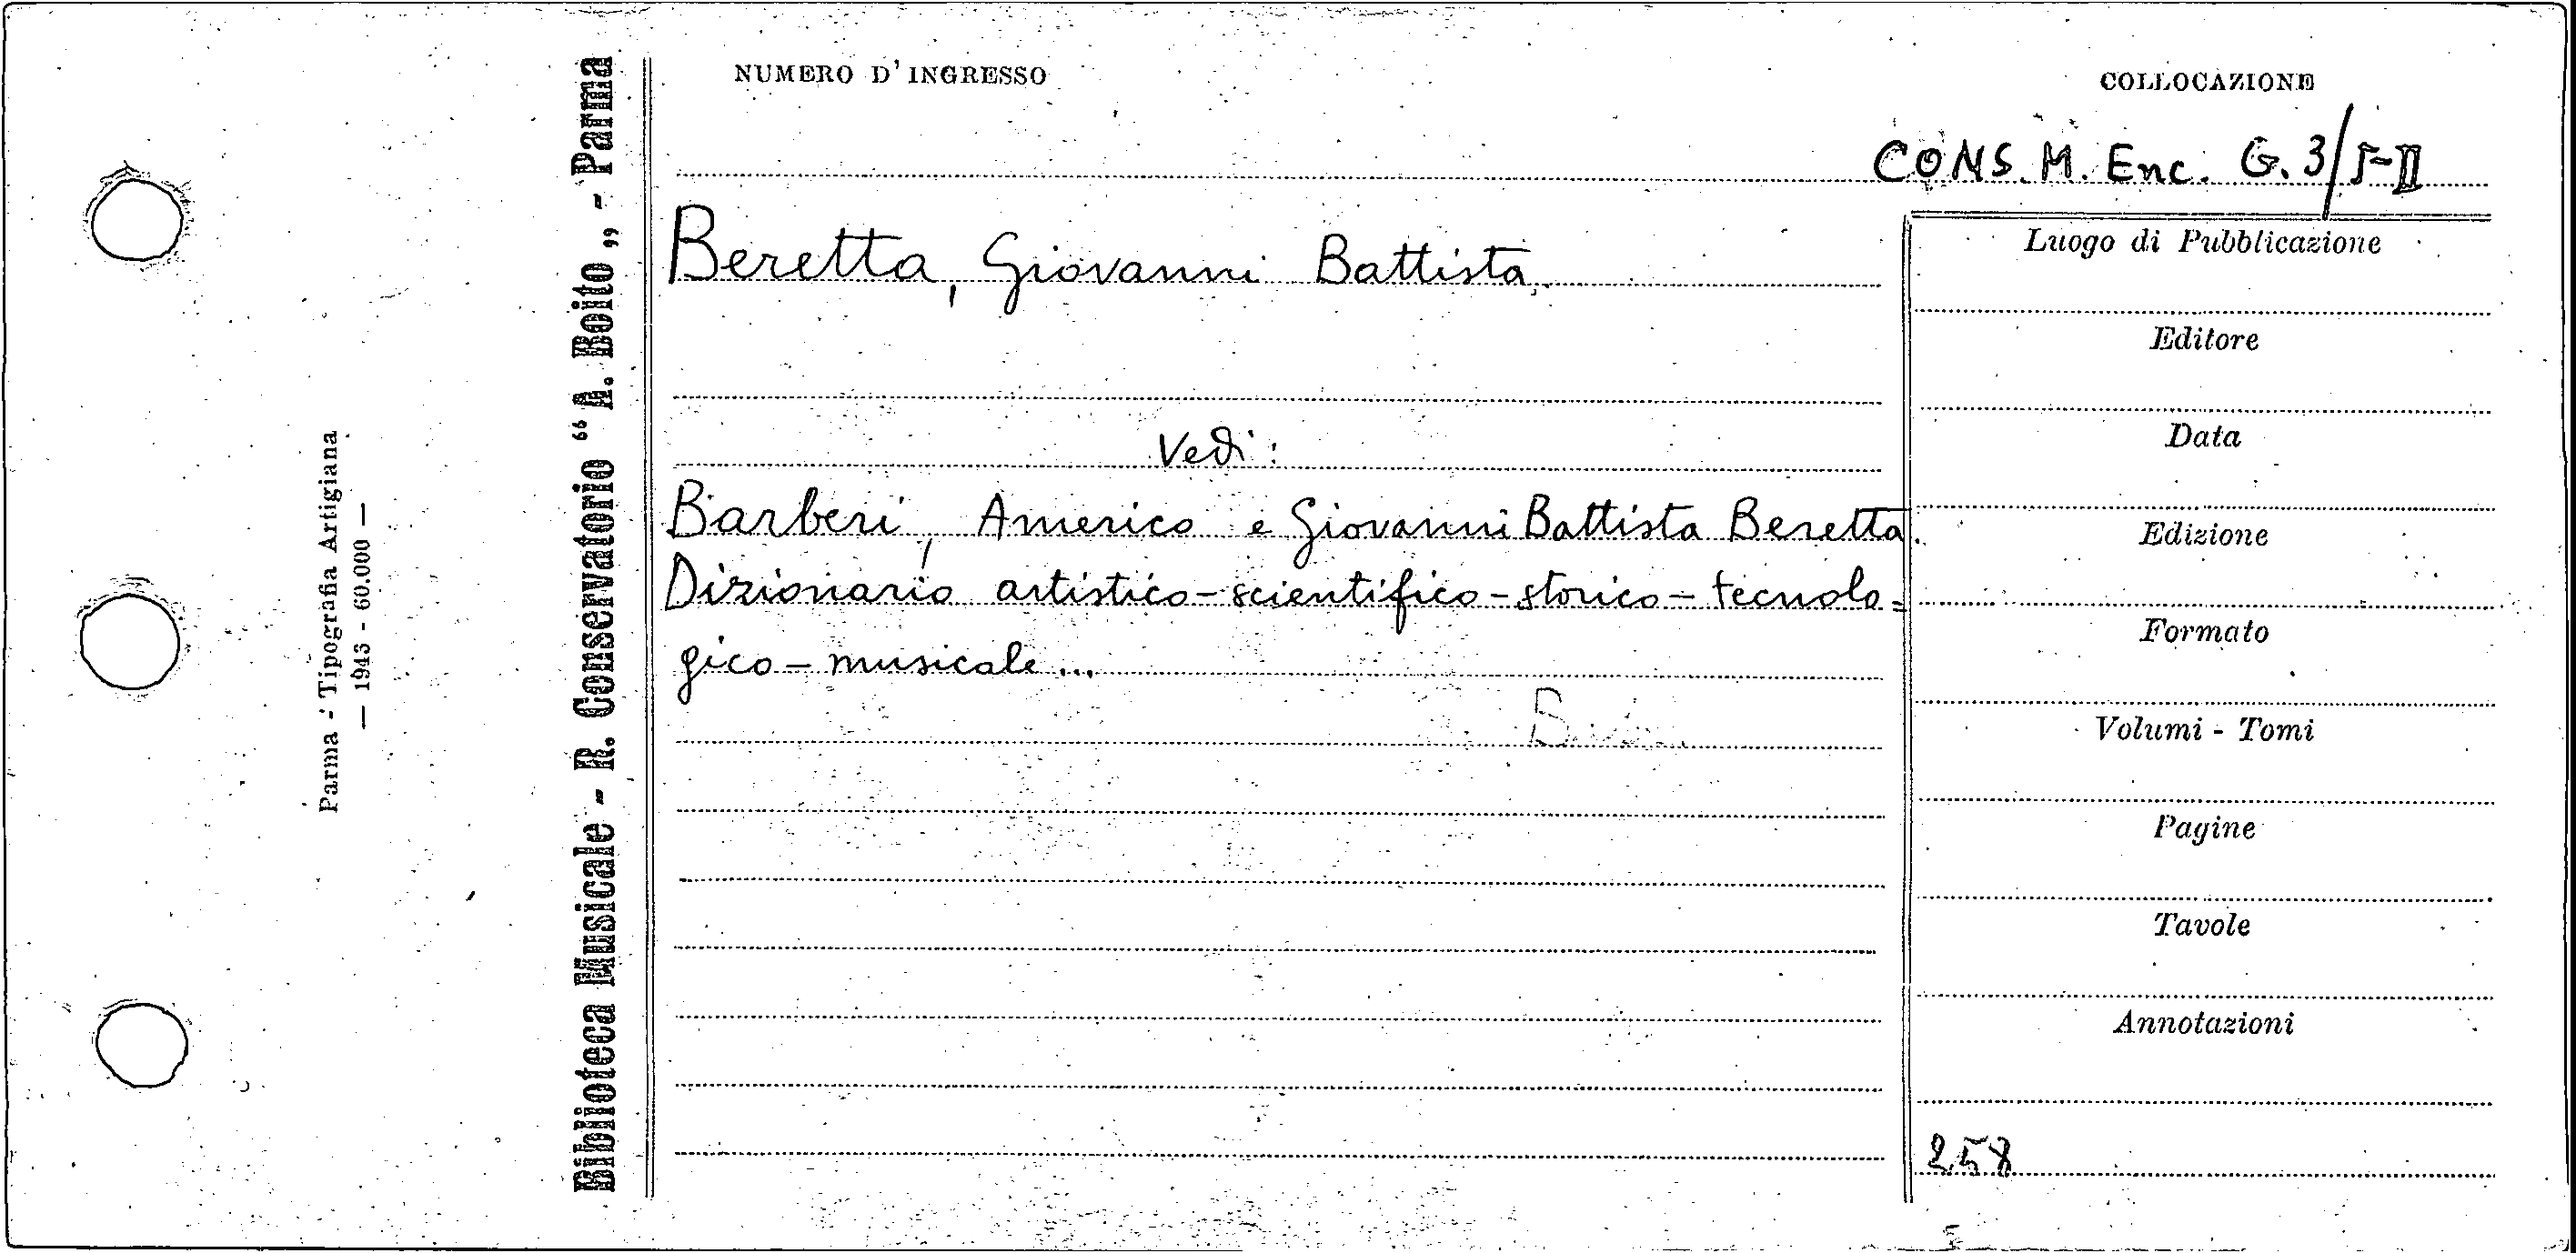 NUMERO D'INGRESSO
COLLOCAZIONE
CONS. M. Enc. G. 3/I-II
Beretta, Giovanni Battista.
Vedi:
Barberi, Americo e Giovanni Battista Beretta.
Dizionario artistico-scientifico-storico-tecnolo=
gico-musicale...
Luogo di Pubblicazione
Editore
Data
Edizione
Formato
Volumi - Tomi
Pagine
Tavole
Annotazioni
258
Biblioteca Musicale - R. Conservatorio “A. Boito„ - Parma
Parma - Tipografia Artigiana
— 1943 - 60.000 —